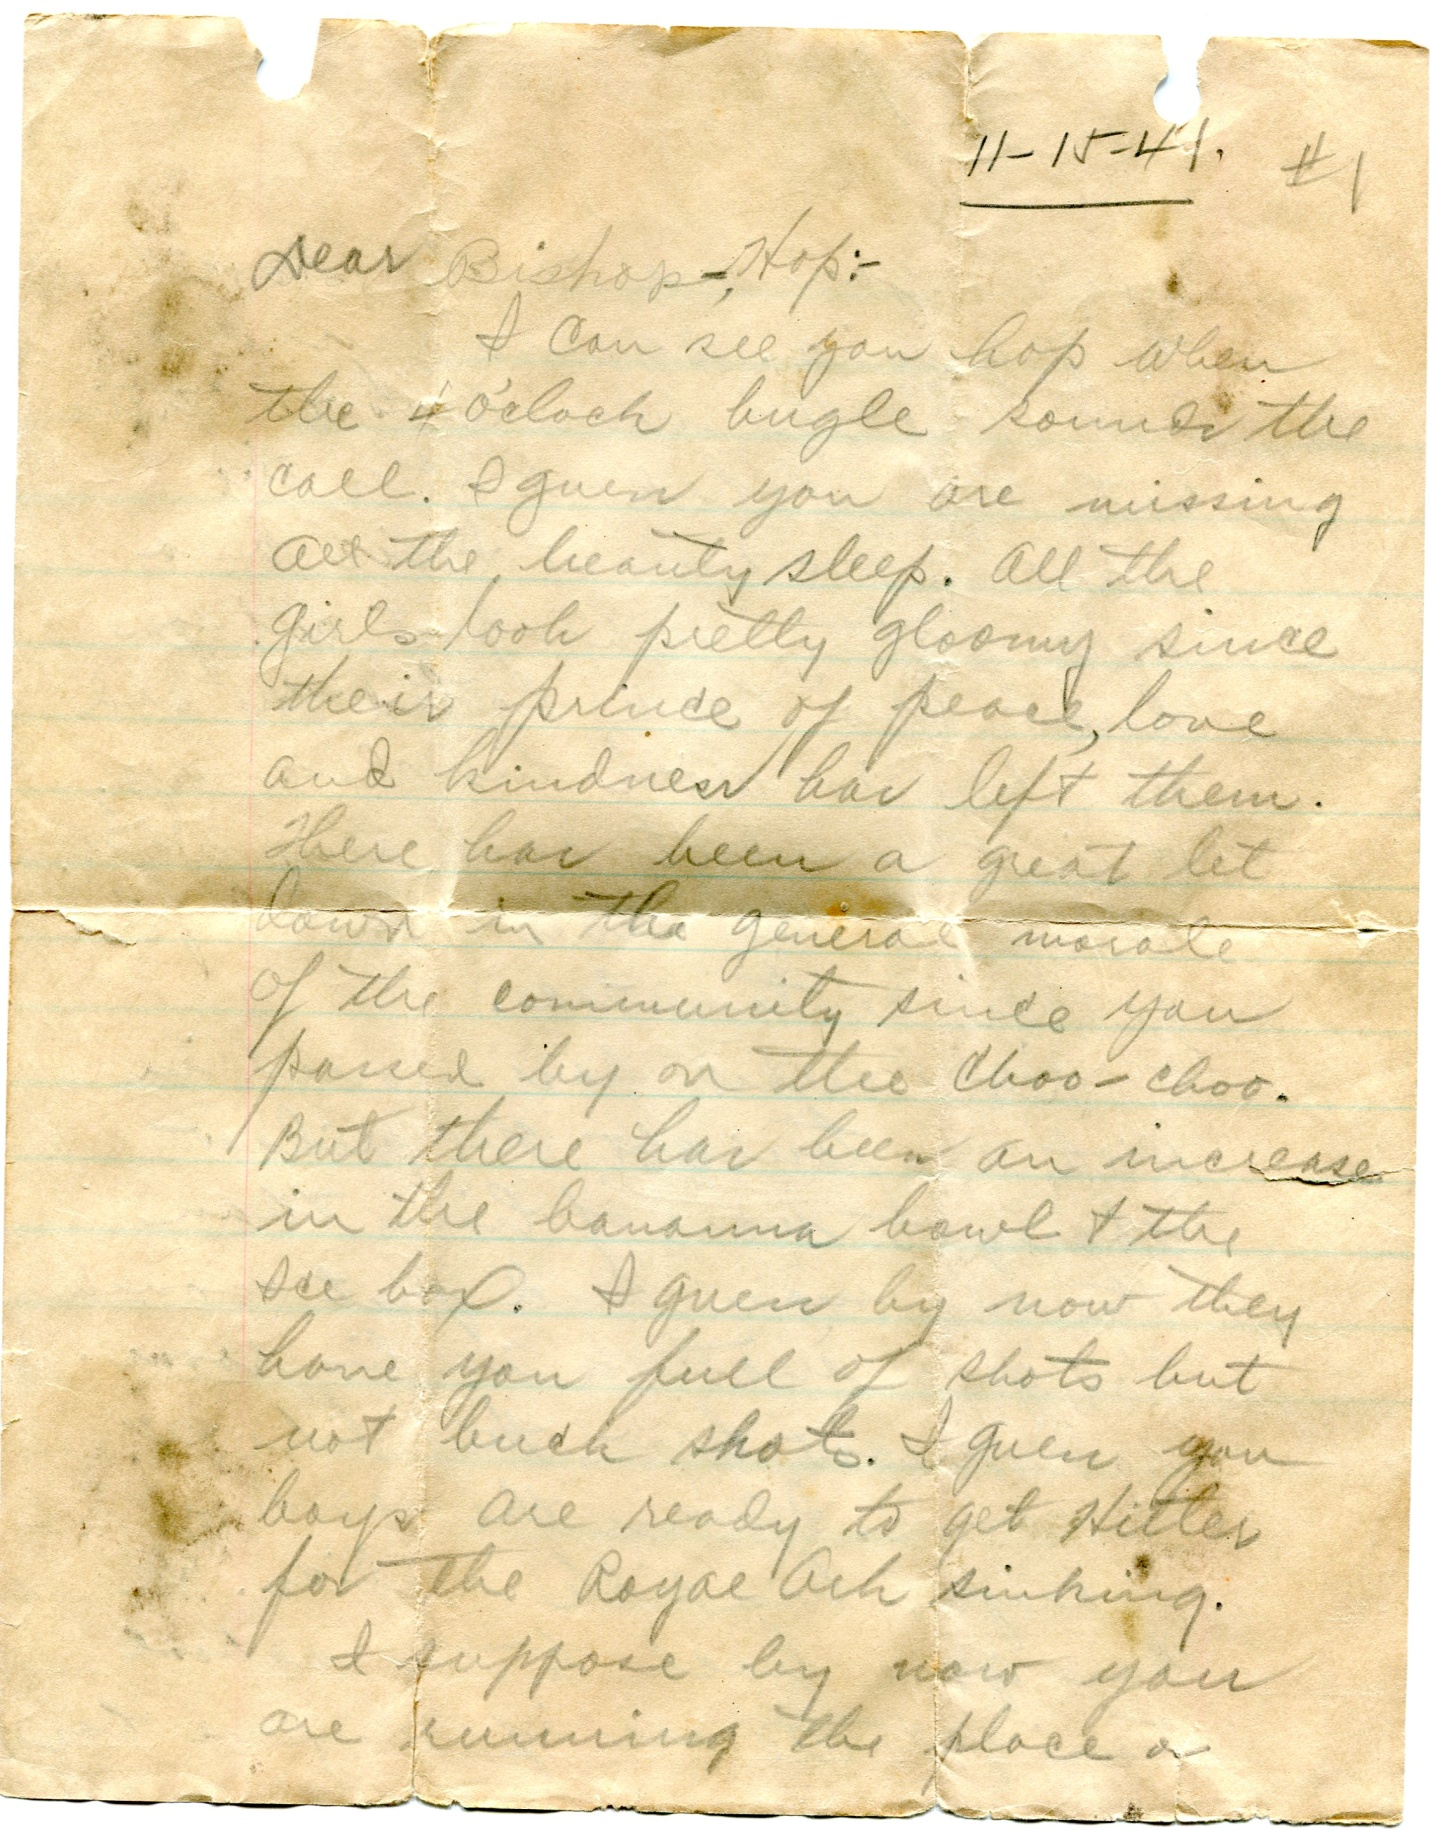 11-15-41. #1
Dear Bishop-, Hop:-
I can see you hop when
the 4 o'clock bugle sounds the
call. I guess you are missing
all the beauty sleep. All the
girls look pretty gloomy since
their prince of peace, love
and kindness has left them.
There has been a great let
down in the general morale
of the community since you
passed by on the choo-choo.
But there has been an increase
in the bananna bowl & the
ice box. I guess by now they
have you full of shots but
not buck shots. I guess you
boys are ready to get Hitler
for the Royal Ark sinking.
I suppose by now you
are running the place or